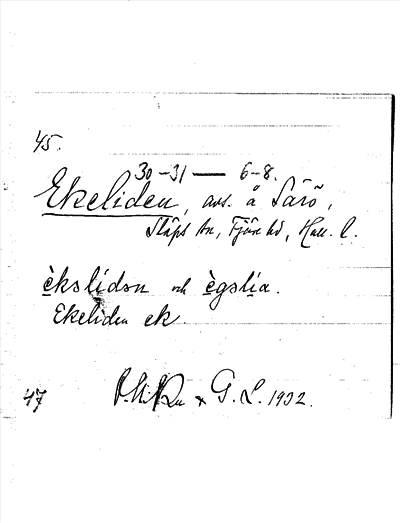 45.
30-31 — 6-8.
Ekeliden, avs. å Särö,
Släps sn, Fjäre hd, Hall. l.
èkslídən och ègslía.
Ekeliden ek.
G. L. 1932.
47